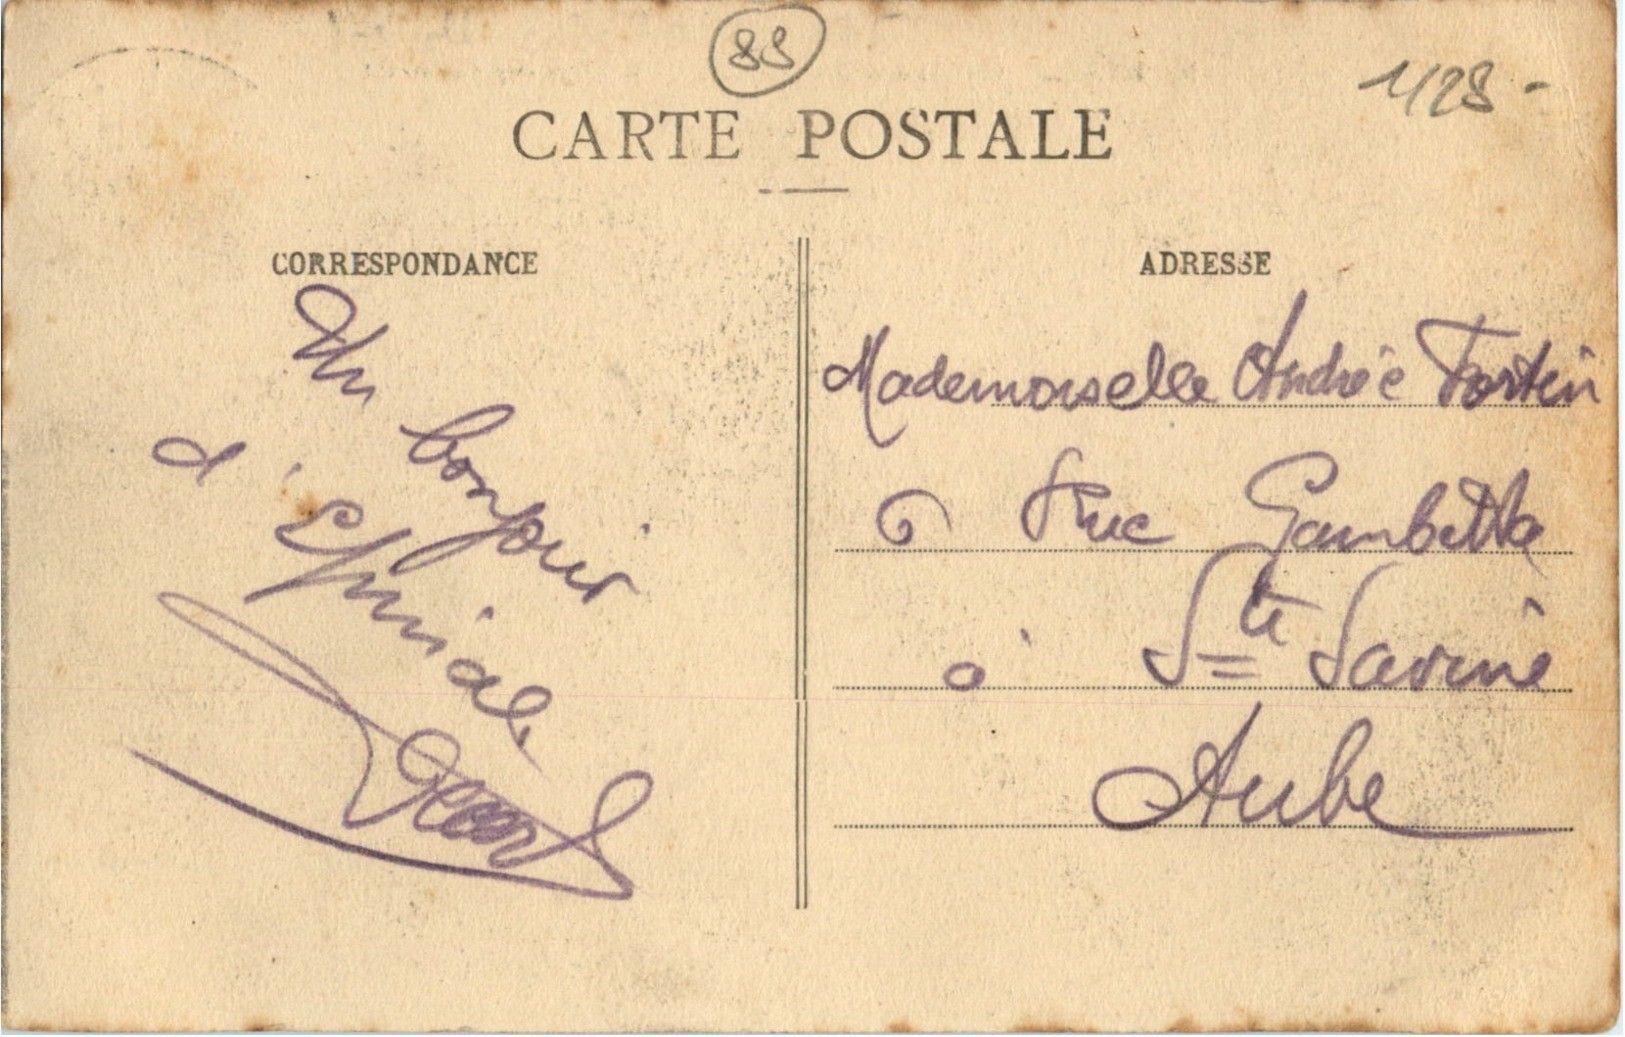 88
1/28 -
CARTE POSTALE
CORRESPONDANCE
Un bonjour
d'Epinal
ADRESSE
Mademoiselle Andrée Fortin
6 Rue Gambetta
à Ste Savine
Aube